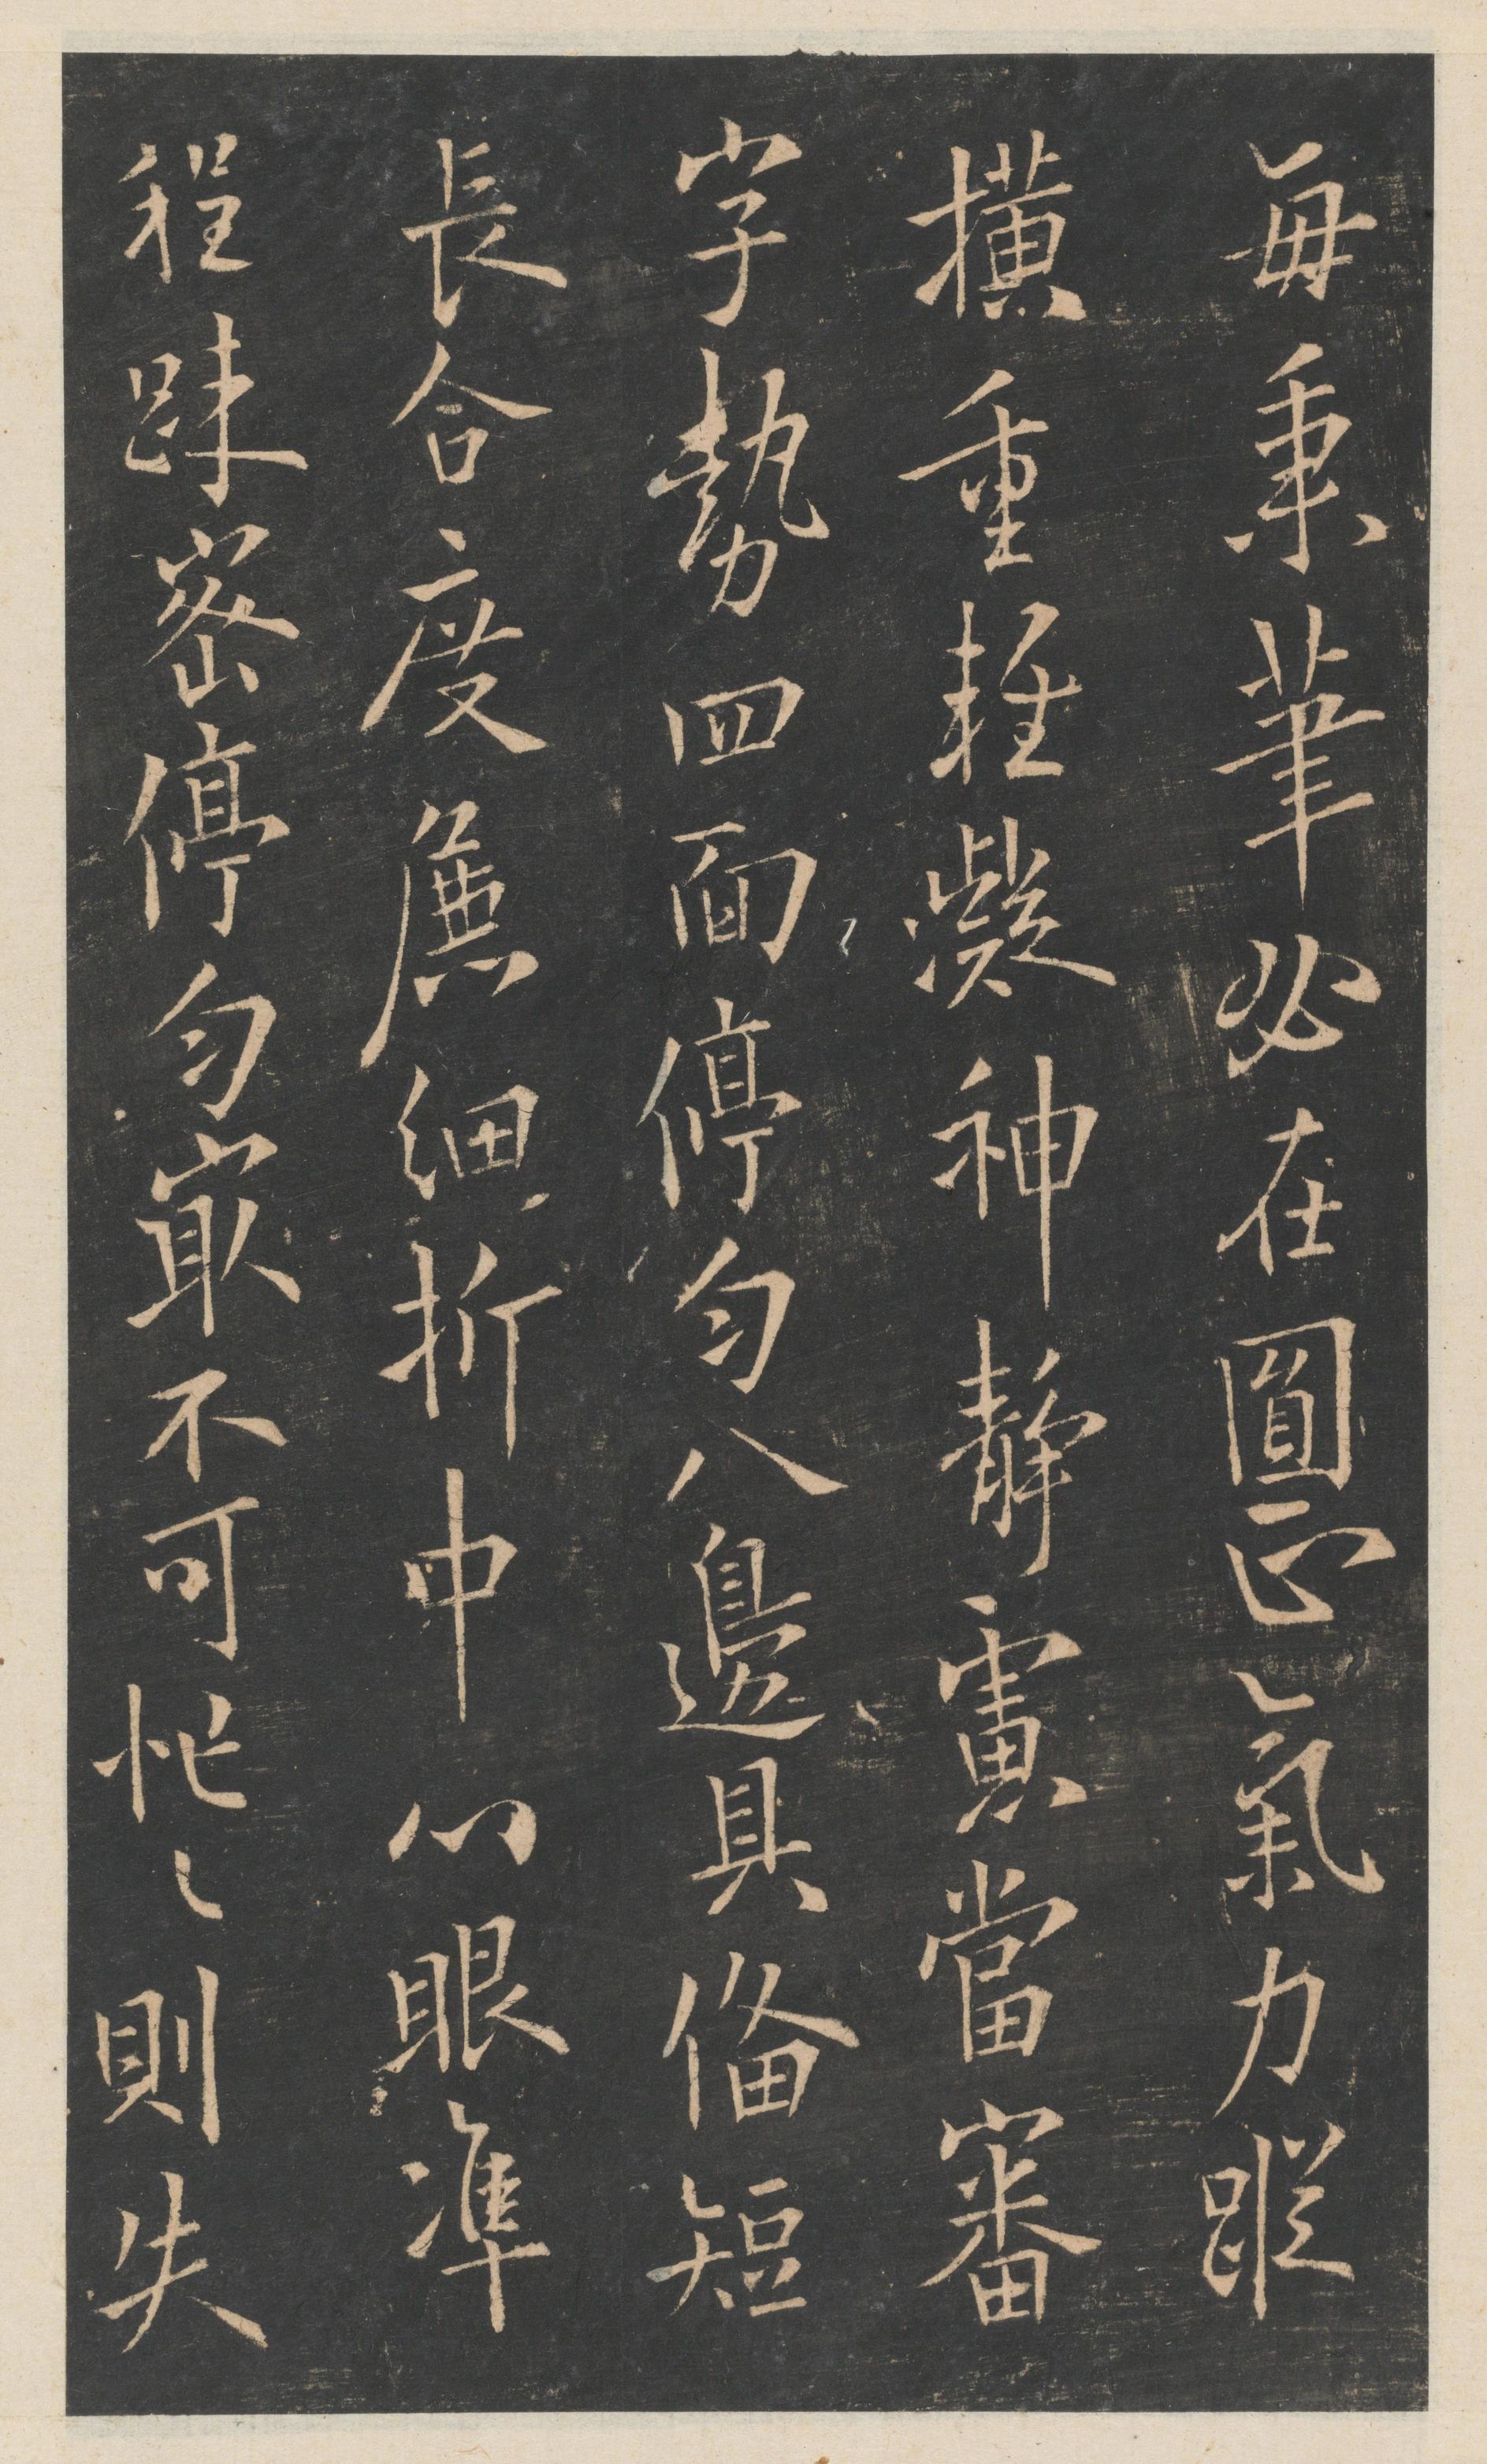 每秉筆必在圓正氣力蹤
橫重輕凝神靜慮當審
字勢四面停勻八邊具俻短
長合度麄細折中心眼准
程踈密停勻最不可忙〻則失